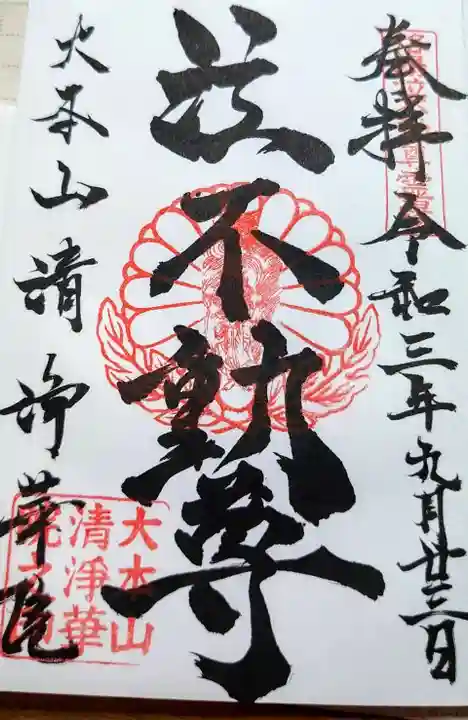 奉拝 令和三年九月廿三日
泣不動尊
大本山清浄華院
大本山
清淨華
院之印